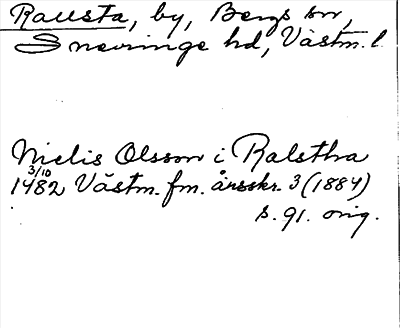 Rausta, by, Bergs sn,
Snevringe hd, Västm. l.
Nielis Olsson i Ralstha
3/10
1482 Västm. fm. årsskr. 3 (1884)
s. 91. orig.